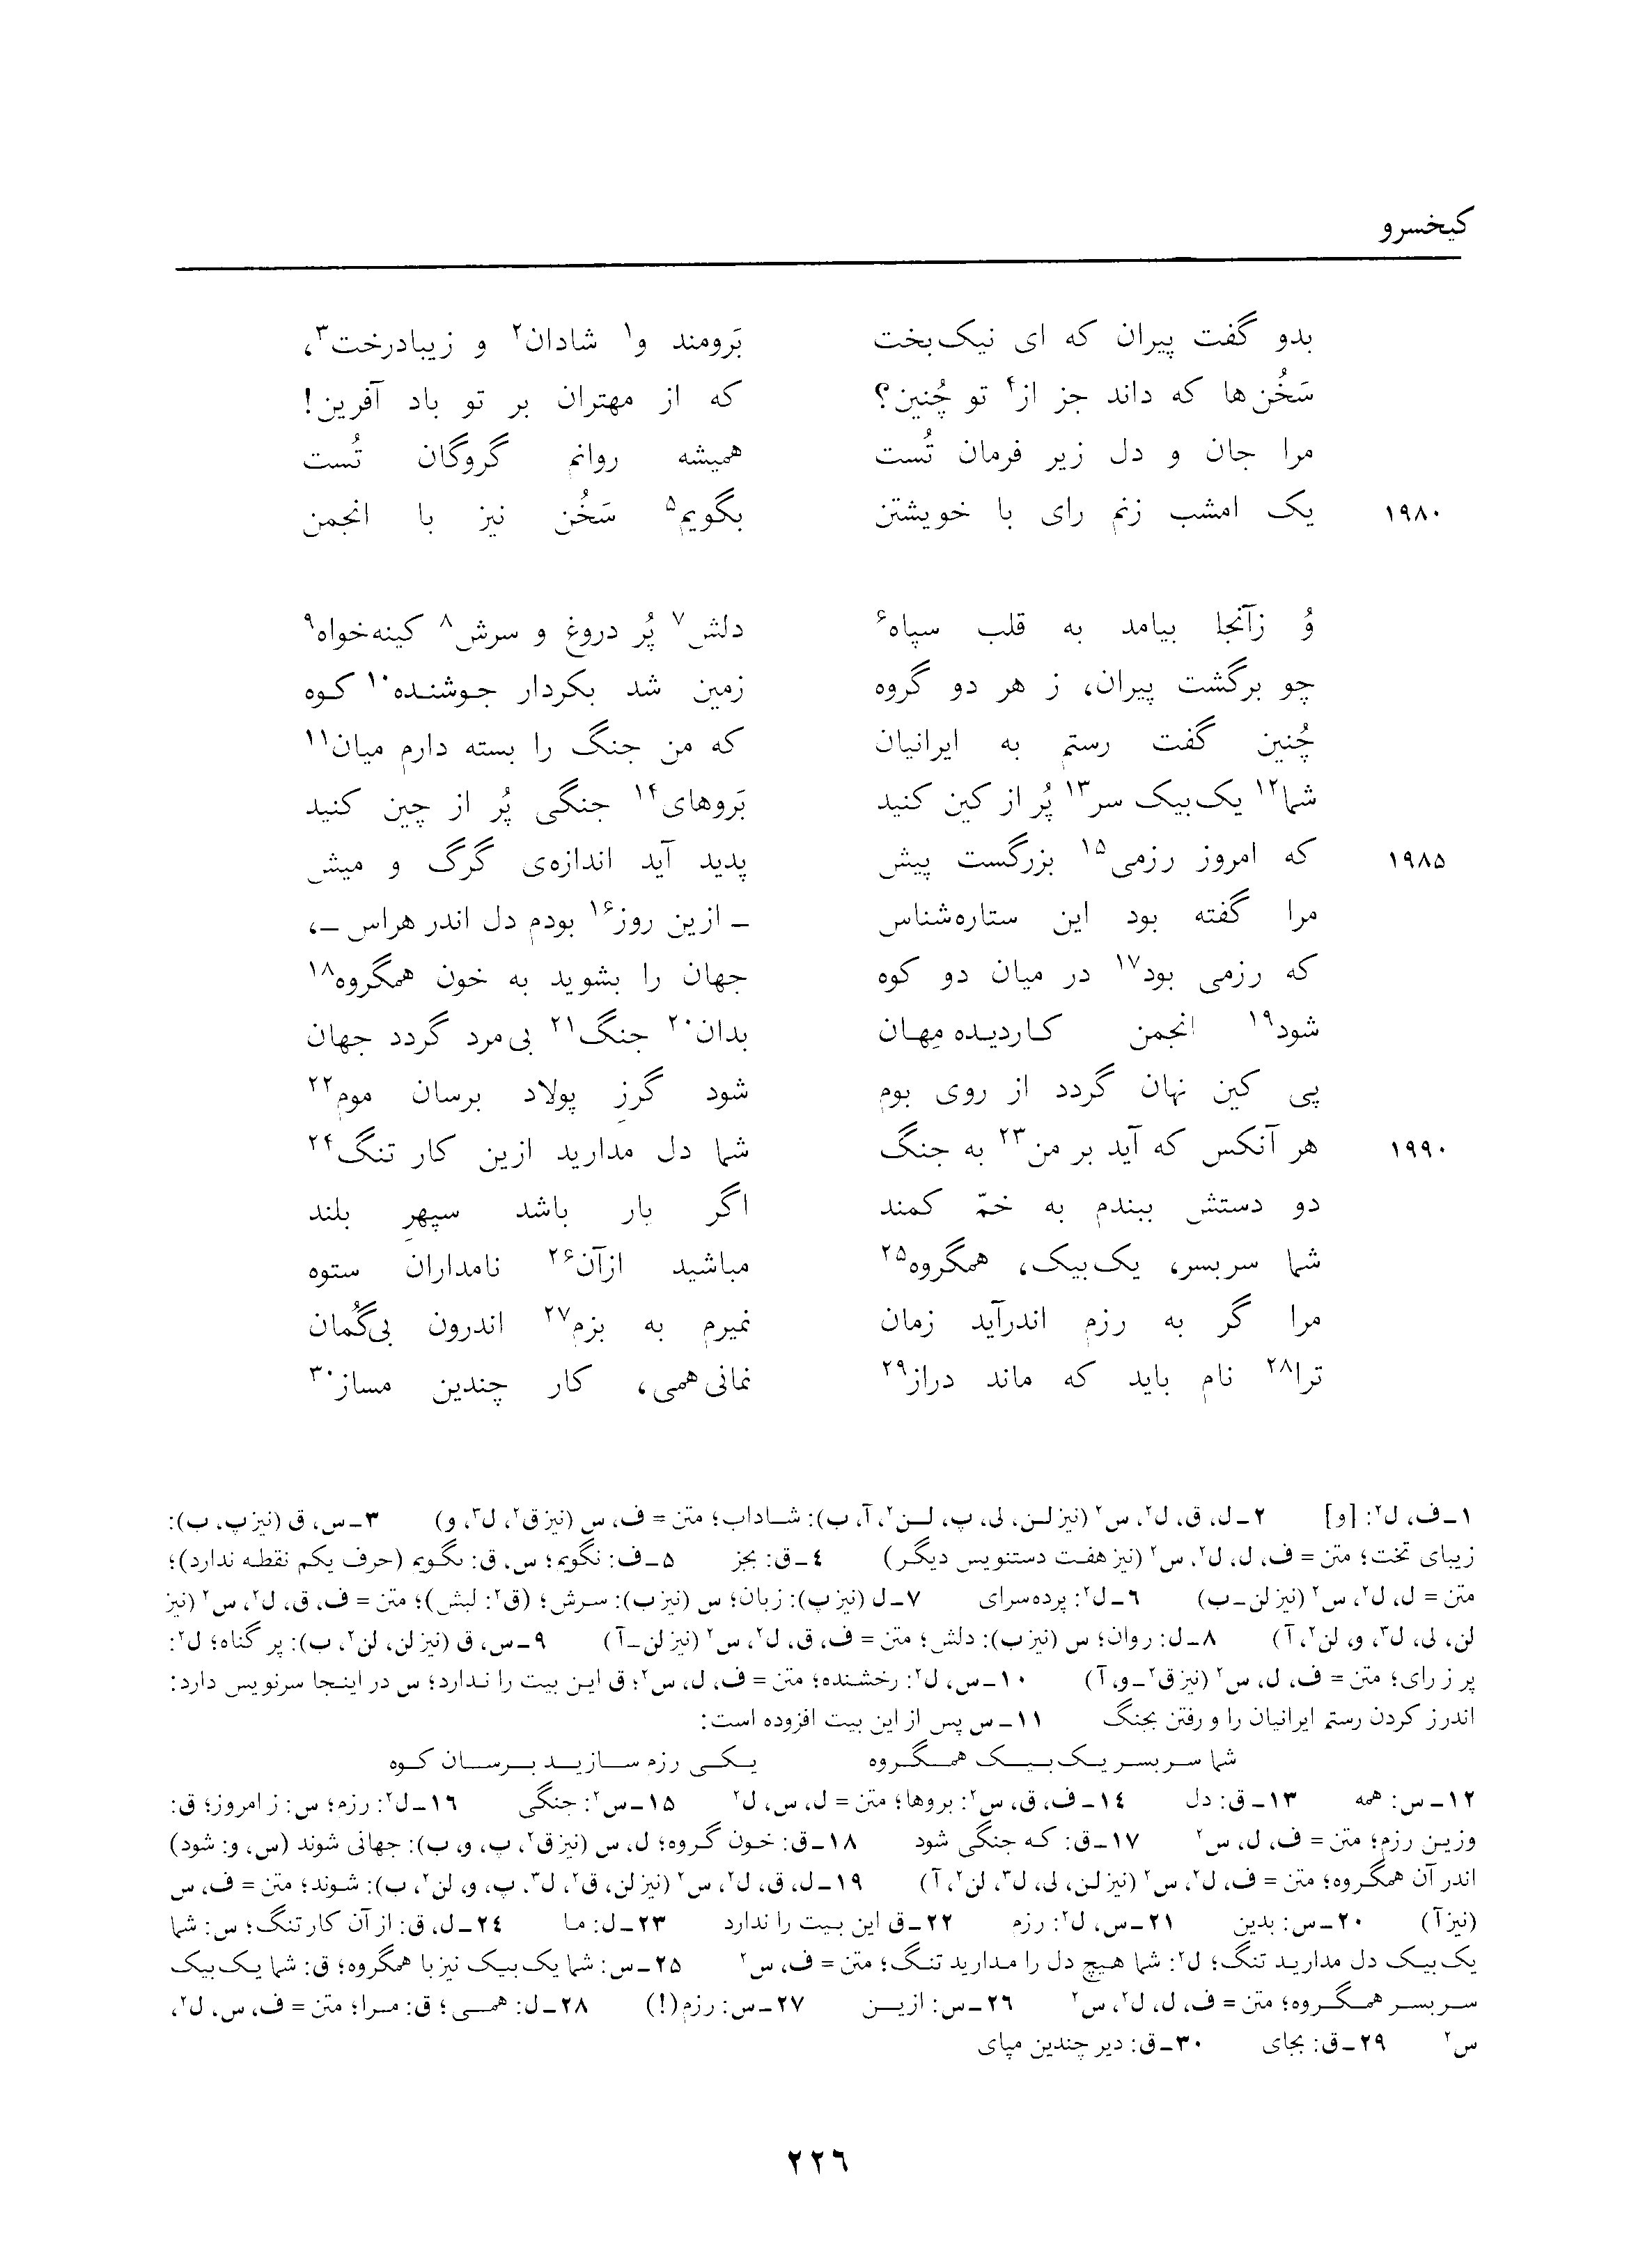 کیخسرو
بدو گفت پیران که ای نیک‌بخت بَرومند و۱ شادان۲ و زیبادرخت۳،
سَخُن‌ها که داند جز از۴ تو چُنین؟ که از مهتران بر تو باد آفرین!
مرا جان و دل زیر فرمان تُست همیشه روانم گروگان تُست
۱۹۸۰ یک امشب زنم رای با خویشتن بگویم۵ سَخُن نیز با انجمن
وُ زآنجا بیامد به قلب سپاه۶ دلش۷ پُر دروغ و سرش۸ کینه‌خواه۹
چو برگشت پیران، ز هر دو گروه زمین شد بکردار جوشنده۱۰ کوه
چُنین گفت رستم به ایرانیان که من جنگ را بسته دارم میان۱۱
شما۱۲ یک‌بیک سر۱۳ پُر از کین کنید بَروهای۱۴ جنگی پُر از چین کنید
۱۹۸۵ که امروز رزمی۱۵ بزرگست پیش پدید آید اندازه‌ی گرگ و میش
مرا گفته بود این ستاره‌شناس ـ ازین روز۱۶ بودم دل اندر هراس ـ،
که رزمی بود۱۷ در میان دو کوه جهان را بشوید به خون همگروه۱۸
شود۱۹ انجمن کاردیده مِهان بدان۲۰ جنگ۲۱ بی‌مرد گردد جهان
پی کین نهان گردد از روی بوم شود گرزِ پولاد برسان موم۲۲
۱۹۹۰ هر آنکس که آید بر من۲۳ به جنگ شما دل مدارید ازین کار تنگ۲۴
دو دستش ببندم به خمّ کمند اگر یار باشد سپهرِ بلند
شما سربسر، یک‌بیک، همگروه۲۵ مباشید ازآن۲۶ نامداران ستوه
مرا گر به رزم اندرآید زمان نمیرم به بزم۲۷ اندرون بی‌گُمان
ترا۲۸ نام باید که ماند دراز۲۹ نمانی همی، کار چندین مساز۳۰
۱ـ ف، ل۲: [و] ۲ـ ل، ق، ل۲، س۲ (نیز لن، لی، پ، لن۲، آ، ب): شاداب؛ متن = ف، س (نیز ق۲، ل۳، و) ۳ـ س، ق (نیز پ، ب):
زیبای تخت؛ متن = ف، ل، ل۲، س۲ (نیز هفت دستنویس دیگر) ۴ـ ق: بجز ۵ـ ف: نگویم؛ س، ق: ٮگویم (حرف یکم نقطه ندارد)؛
متن = ل، ل۲، س۲ (نیز لن ـ ب) ۶ـ ل۲: پرده‌سرای ۷ـ ل (نیز پ): زبان؛ س (نیز ب): سرش؛ (ق۲: لبش)؛ متن = ف، ق، ل۲، س۲ (نیز
لن، لی، ل۳، و، لن۲، آ) ۸ـ ل: روان؛ س (نیز ب): دلش؛ متن = ف، ق، ل۲، س۲ (نیز لن ـ آ) ۹ـ س، ق (نیز لن، لن۲، ب): پر گناه؛ ل۲:
پر ز رای؛ متن = ف، ل، س۲ (نیز ق۲ ـ و، آ) ۱۰ـ س، ل۲: رخشنده؛ متن = ف، ل، س۲؛ ق این بیت را ندارد؛ س در اینجا سرنویس دارد:
اندرز کردن رستم ایرانیان را و رفتن بجنگ ۱۱ـ س پس از این بیت افزوده است:
شما سربسر یک‌بیک همگروه یکی رزم سازید برسان کوه
۱۲ـ س: همه ۱۳ـ ق: دل ۱۴ـ ف، ق، س۲: بروها؛ متن = ل، س، ل۲ ۱۵ـ س۲: جنگی ۱۶ـ ل۲: رزم؛ س: ز امروز؛ ق:
وزین رزم؛ متن = ف، ل، س۲ ۱۷ـ ق: که جنگی شود ۱۸ـ ق: خون گروه؛ ل، س (نیز ق۲، پ، و، ب): جهانی شوند (س، و: شود)
اندر آن همگروه؛ متن = ف، ل۲، س۲ (نیز لن، لی، ل۳، لن۲، آ) ۱۹ـ ل، ق، ل۲، س۲ (نیز لن، ق۲، ل۳، پ، و، لن۲، ب): شوند؛ متن = ف، س
(نیز آ) ۲۰ـ س: بدین ۲۱ـ س، ل۲: رزم ۲۲ـ ق این بیت را ندارد ۲۳ـ ل: ما ۲۴ـ ل، ق: از آن کار تنگ؛ س: شما
یک‌بیک دل مدارید تنگ؛ ل۲: شما هیچ دل را مدارید تنگ؛ متن = ف، س۲ ۲۵ـ س: شما یک‌بیک نیز با همگروه؛ ق: شما یک‌بیک
سربسر همگروه؛ متن = ف، ل، ل۲، س۲ ۲۶ـ س: ازین ۲۷ـ س: رزم (!) ۲۸ـ ل: همی؛ ق: مرا؛ متن = ف، س، ل۲،
س۲ ۲۹ـ ق: بجای ۳۰ـ ق: دیر چندین مپای
۲۲۶